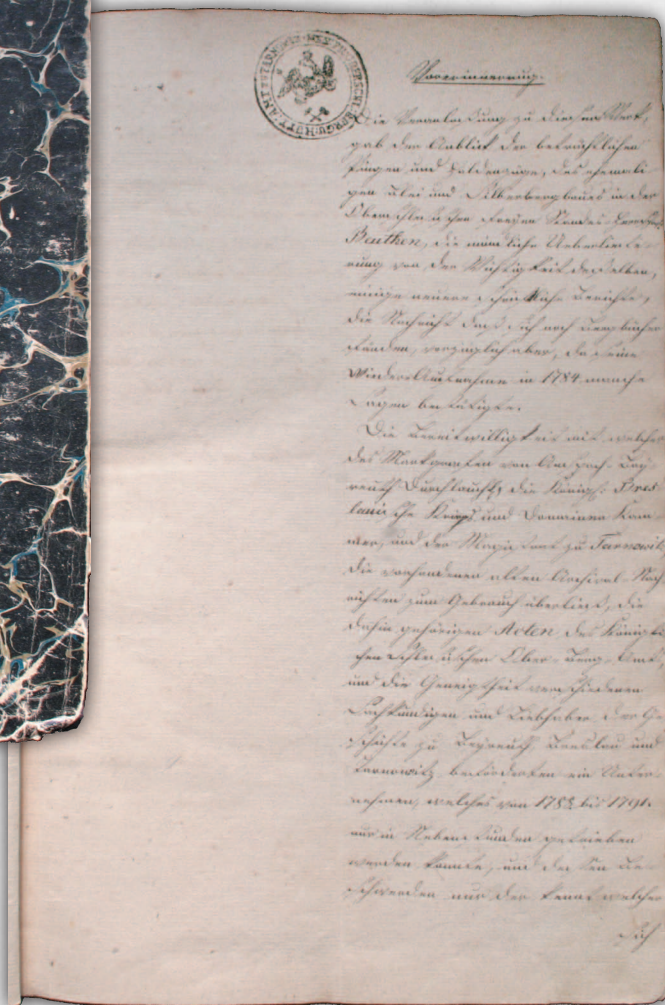 Vorerinnerung.
Die Veranlassung zu diesem Werk,
gab der Anblick der beträchtlichen
Pingen und Haldenzüge, des ehemali-
gen Blei und Silberbergbaues in der
Oberschlesischen Freyen Standes-Herrschaft
Beuthen, die mündliche Ueberliefe-
rung von der Wichtigkeit desselben,
einige neuere schriftliche Berichte,
die Nachricht daß sich noch Bergbücher
fänden, vorzüglich aber, da seine
Wieder Aufnahme in 1784 manche
Sagen bestätigte.
Die Bereitwilligkeit mit welcher
des Markgrafen von Anspach-Bay-
reuth Durchlaucht, die Königl. Bres-
lauische Krieges und Domainen Kam-
mer, und der Magistrat zu Tarnowitz
die vorhandenen alten Archival-Nach-
richten zum Gebrauch überließ, die
dahin gehörigen Acten des Königli-
chen Schlesischen Ober-Berg-Amts
und die Geneigtheit verschiedener
Sachkundigen und Liebhaber der Ge-
schichte zu Bayreuth, Breslau und
Tarnowitz beförderten ein Unter-
nehmen, welches von 1788 bis 1791.
nur in Nebenstunden getrieben
werden konnte, und dessen Be-
schwerden nur der kennt welcher
sich